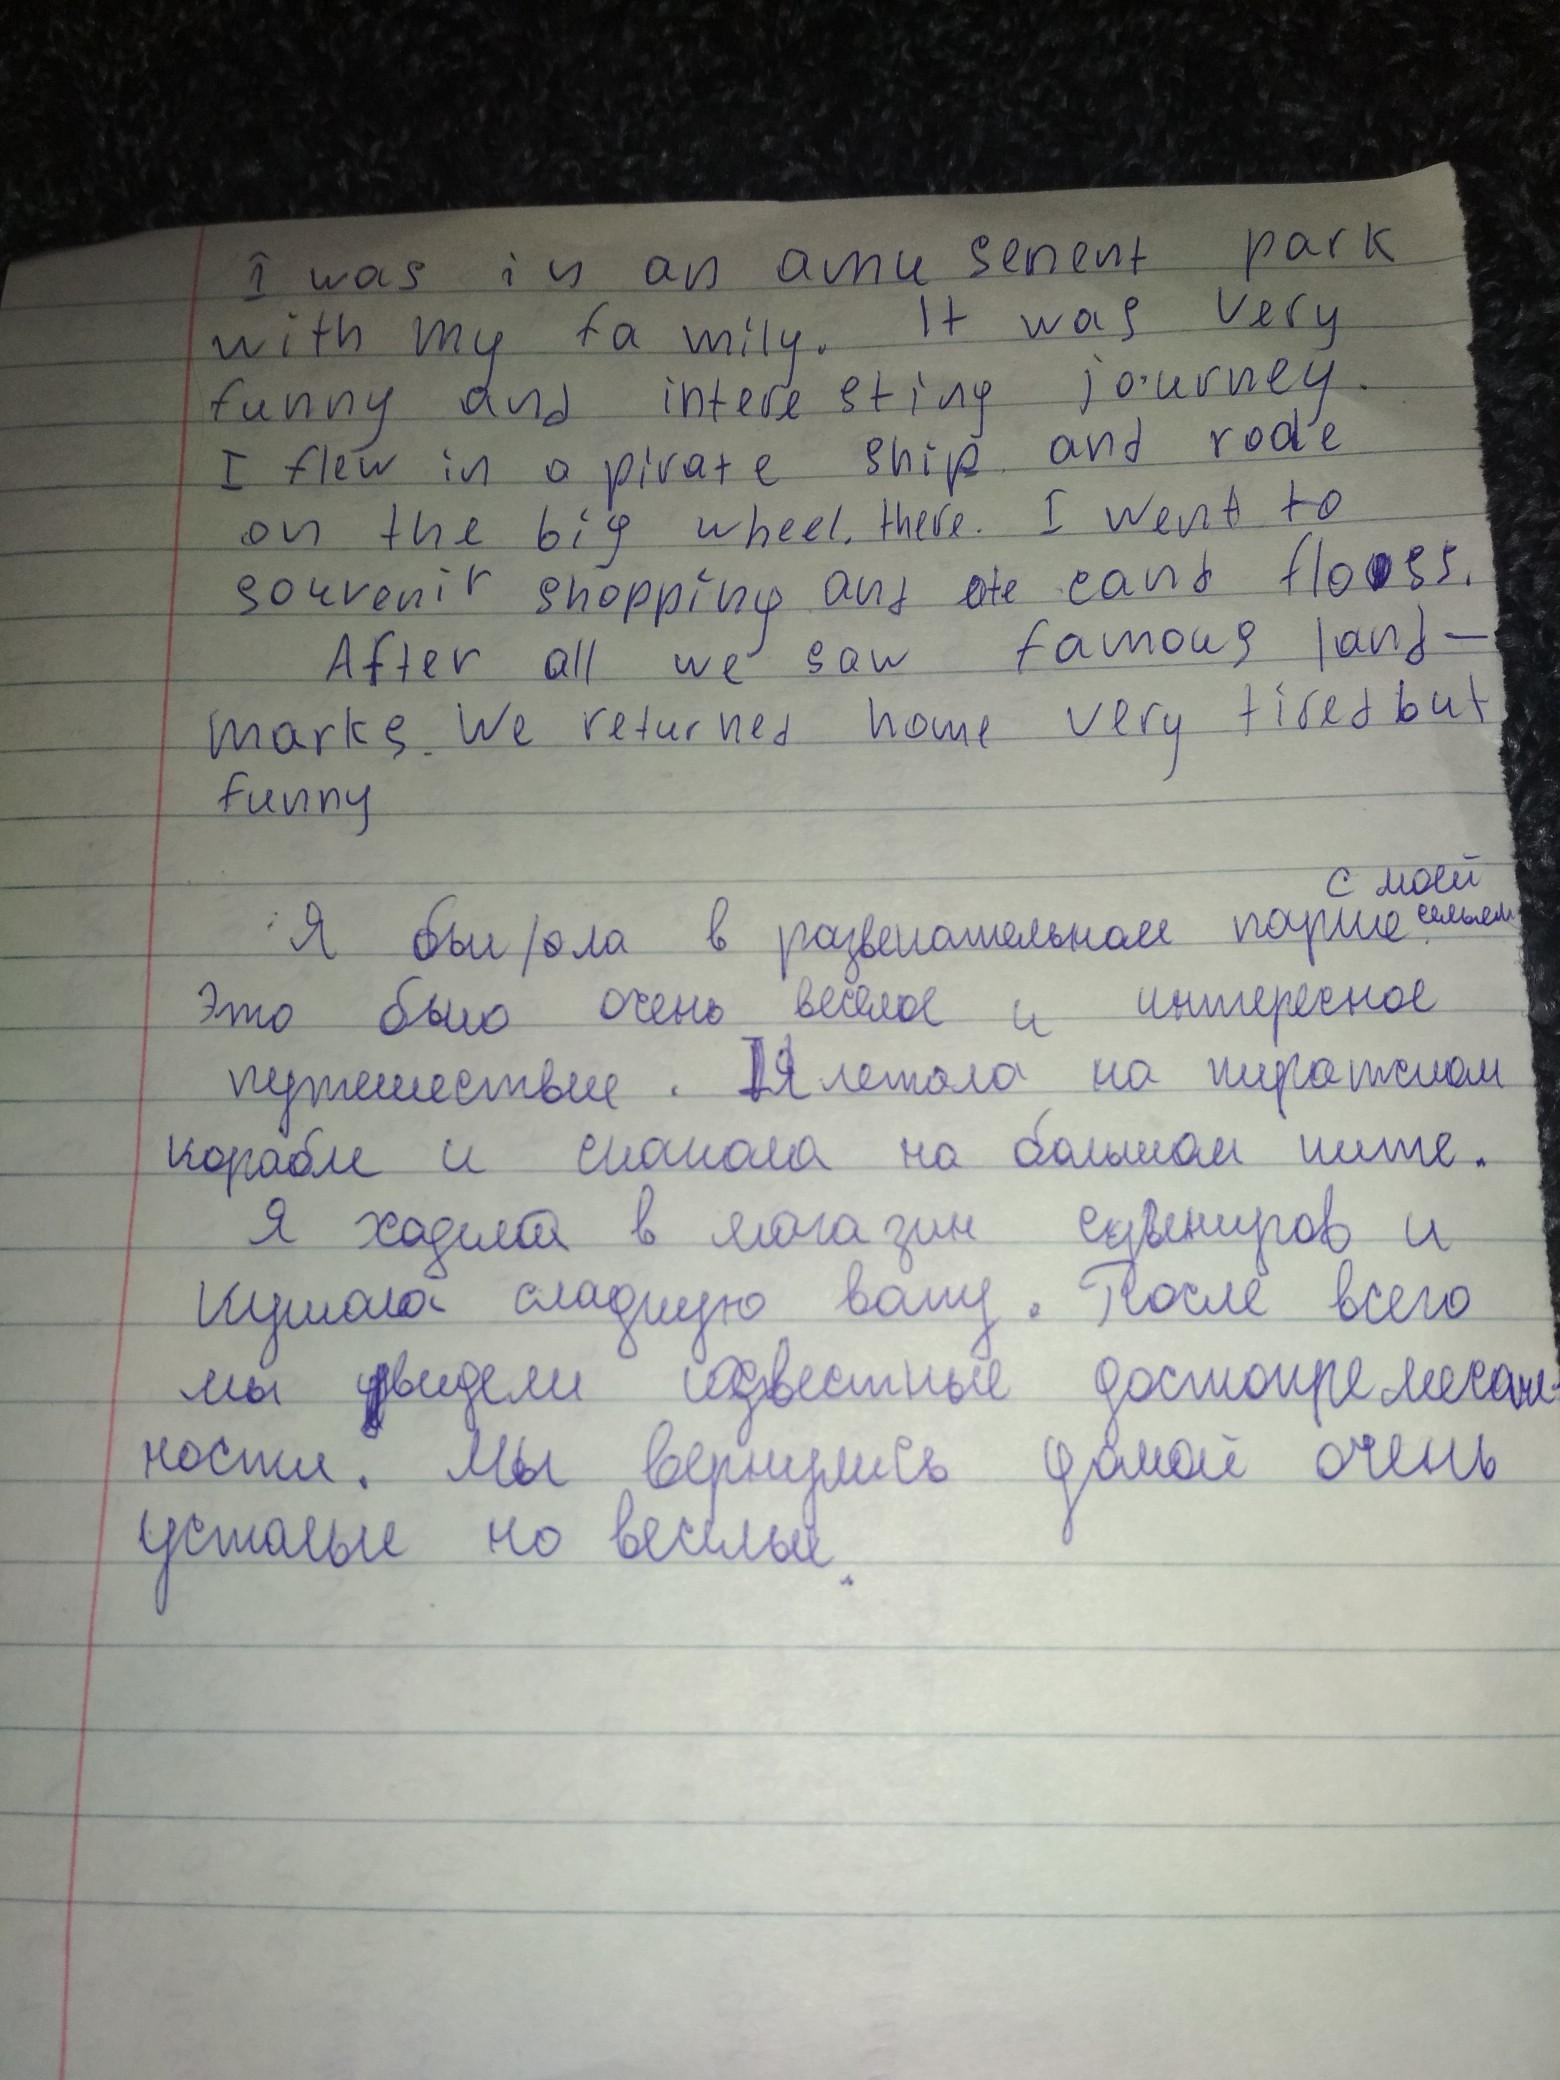 I was in an amusenent park
with my family. It was very
funny and interesting journey.
I flew in a pirate ship and rode
on the big wheel. there. I went to
souvenir shopping and ate cand flooss.
After all we saw famous land-
marks. We returned home very tired but
funny
с моей
Я был/ола в развекательном парке семьей
Это было очень веселое и интересное
путешествие. Я летала на пиратском
корабле и скакала на большом ките.
Я ходила в магазин сувениров и
Кушала сладкую вату. После всего
мы увидели известные достопремечаме-
ности. Мы вернулись домой очень
усталые но веселые.